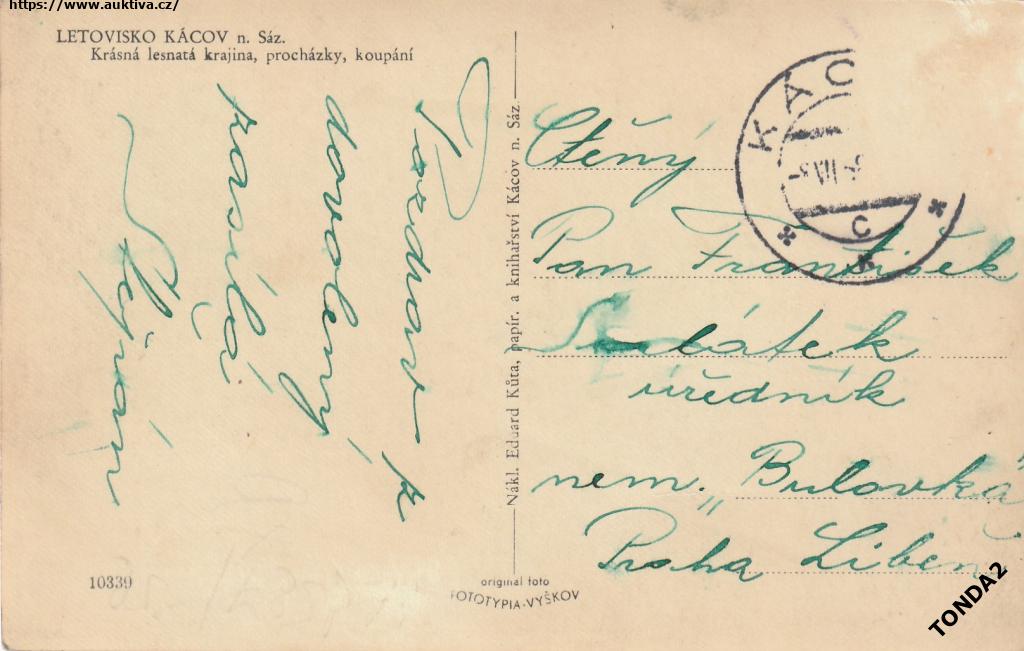 https://www.auktiva.cz/
LETOVISKO KÁCOV n. Sáz.
Krásná lesnatá krajina, procházky, koupání
Pozdrav z
dovolený
zasílá
Nákl. Eduard Kůta, papír. a knihařství Kácov n. Sáz.
KÁC
C
Ctěný
Pan František
úředník
nem. „Bulovka
Praha Liben
10339
original foto
FOTOTYPIA-VYŠKOV
TONDA2